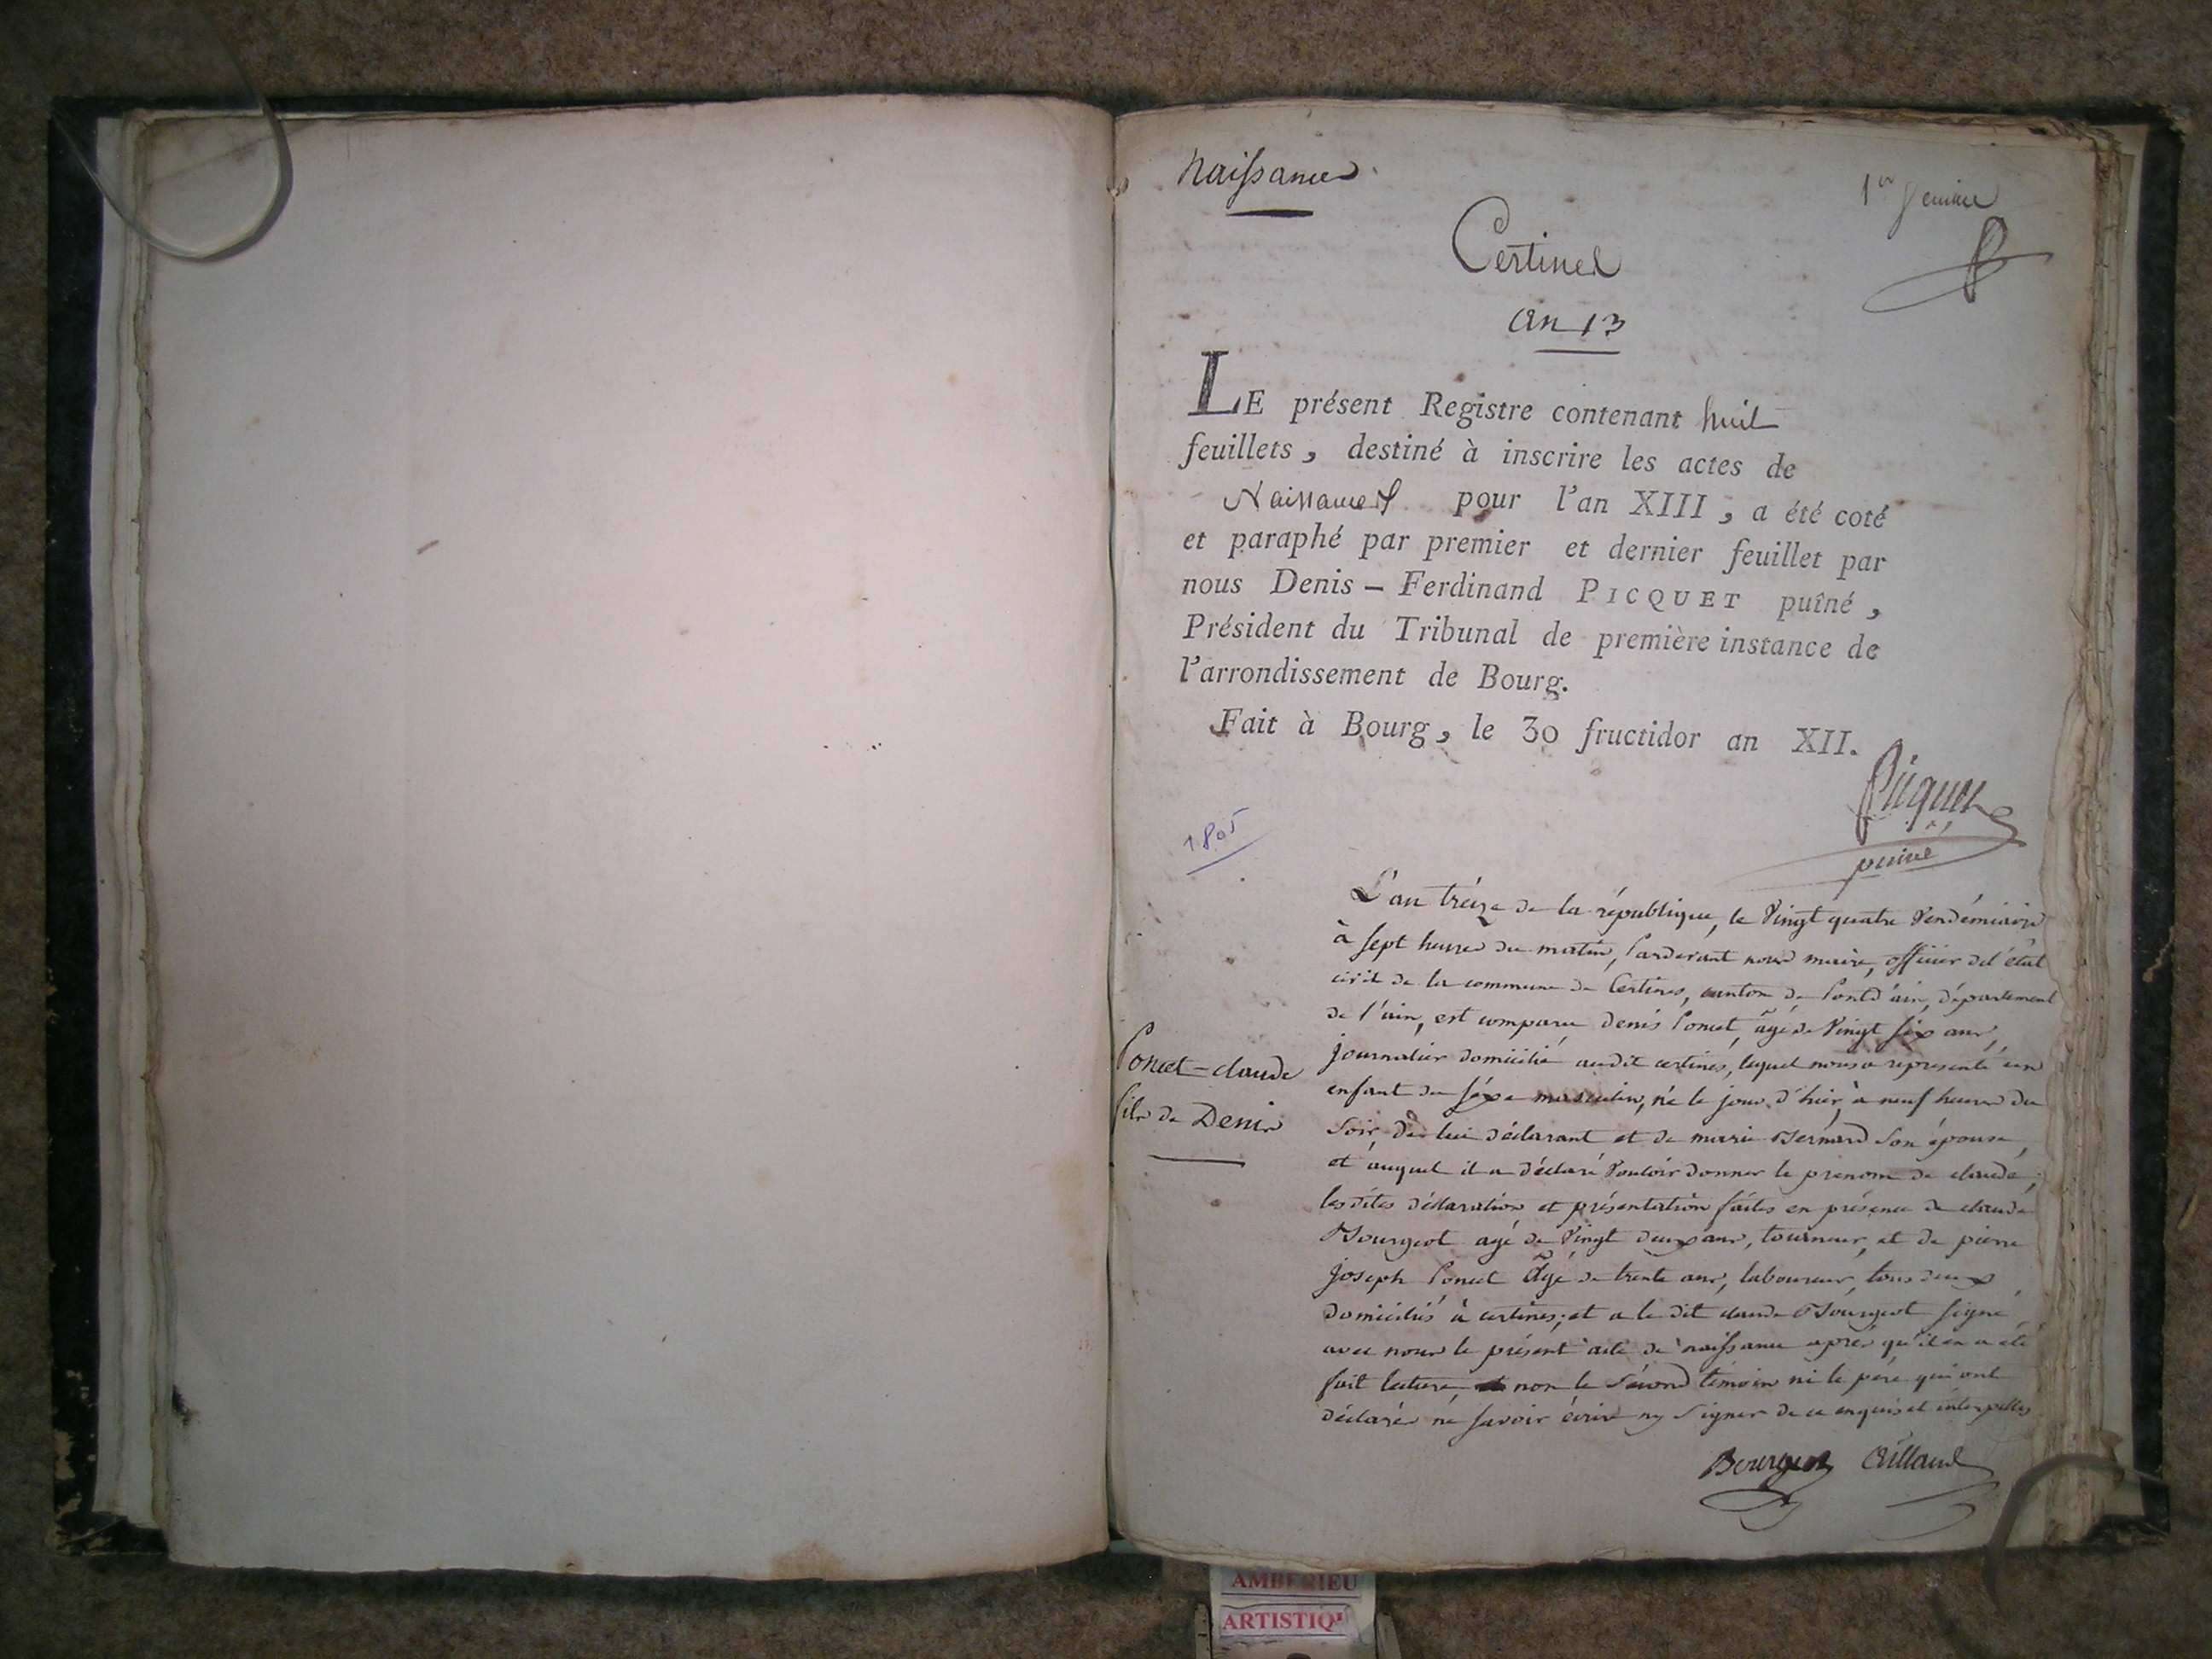 Naissance
1er feuillet
Certines
an 13
LE présent Registre contenant huit
feuillets, destiné à inscrire les actes de
Naissances pour l'an XIII, a été coté
et paraphé par premier et dernier feuillet par
nous Denis – Ferdinand PICQUET puîné,
Président du Tribunal de première instance de
l'arrondissement de Bourg.
Fait à Bourg, le 30 fructidor an XII.
Picquet
puiné
1805
L'an treize de la république, le Vingt quatre Vendémiaire
à sept heures du matin, Pardevant nous maire, officier del'état
civil de la commune de Certines, canton de Pontd'ain, département
de l'ain, est comparu denis Poncet, âgé de Vingt six ans,
journalier domicilié audit certines, lequel nous a représenté un
enfant du séxe masculin, né le jour d'hier, à neuf heures du
soir, de lui déclarant et de marie Bernard son épouse,
et auquel il a déclaré Vouloir donner le prenom de claude;
les dites déclaration et présentation faites en présence de claude
Bourgeot agé de Vingt deux ans, tourneur, et de pierre
joseph Poncet âgé de trente ans, laboureur, tous deux
domiciliés à certines; et a le dit claude Bourgeot signé
avec nous le présent acte de naissance après qu'il en a été
fait lecture, non le sécond témoin ni le pére qui ont
déclarés né savoir écrire ny signer de ce enquis et interpellés
Poncet = claude
fils de Denis
Bourgeot
AMBERIEU
ARTISTIQ